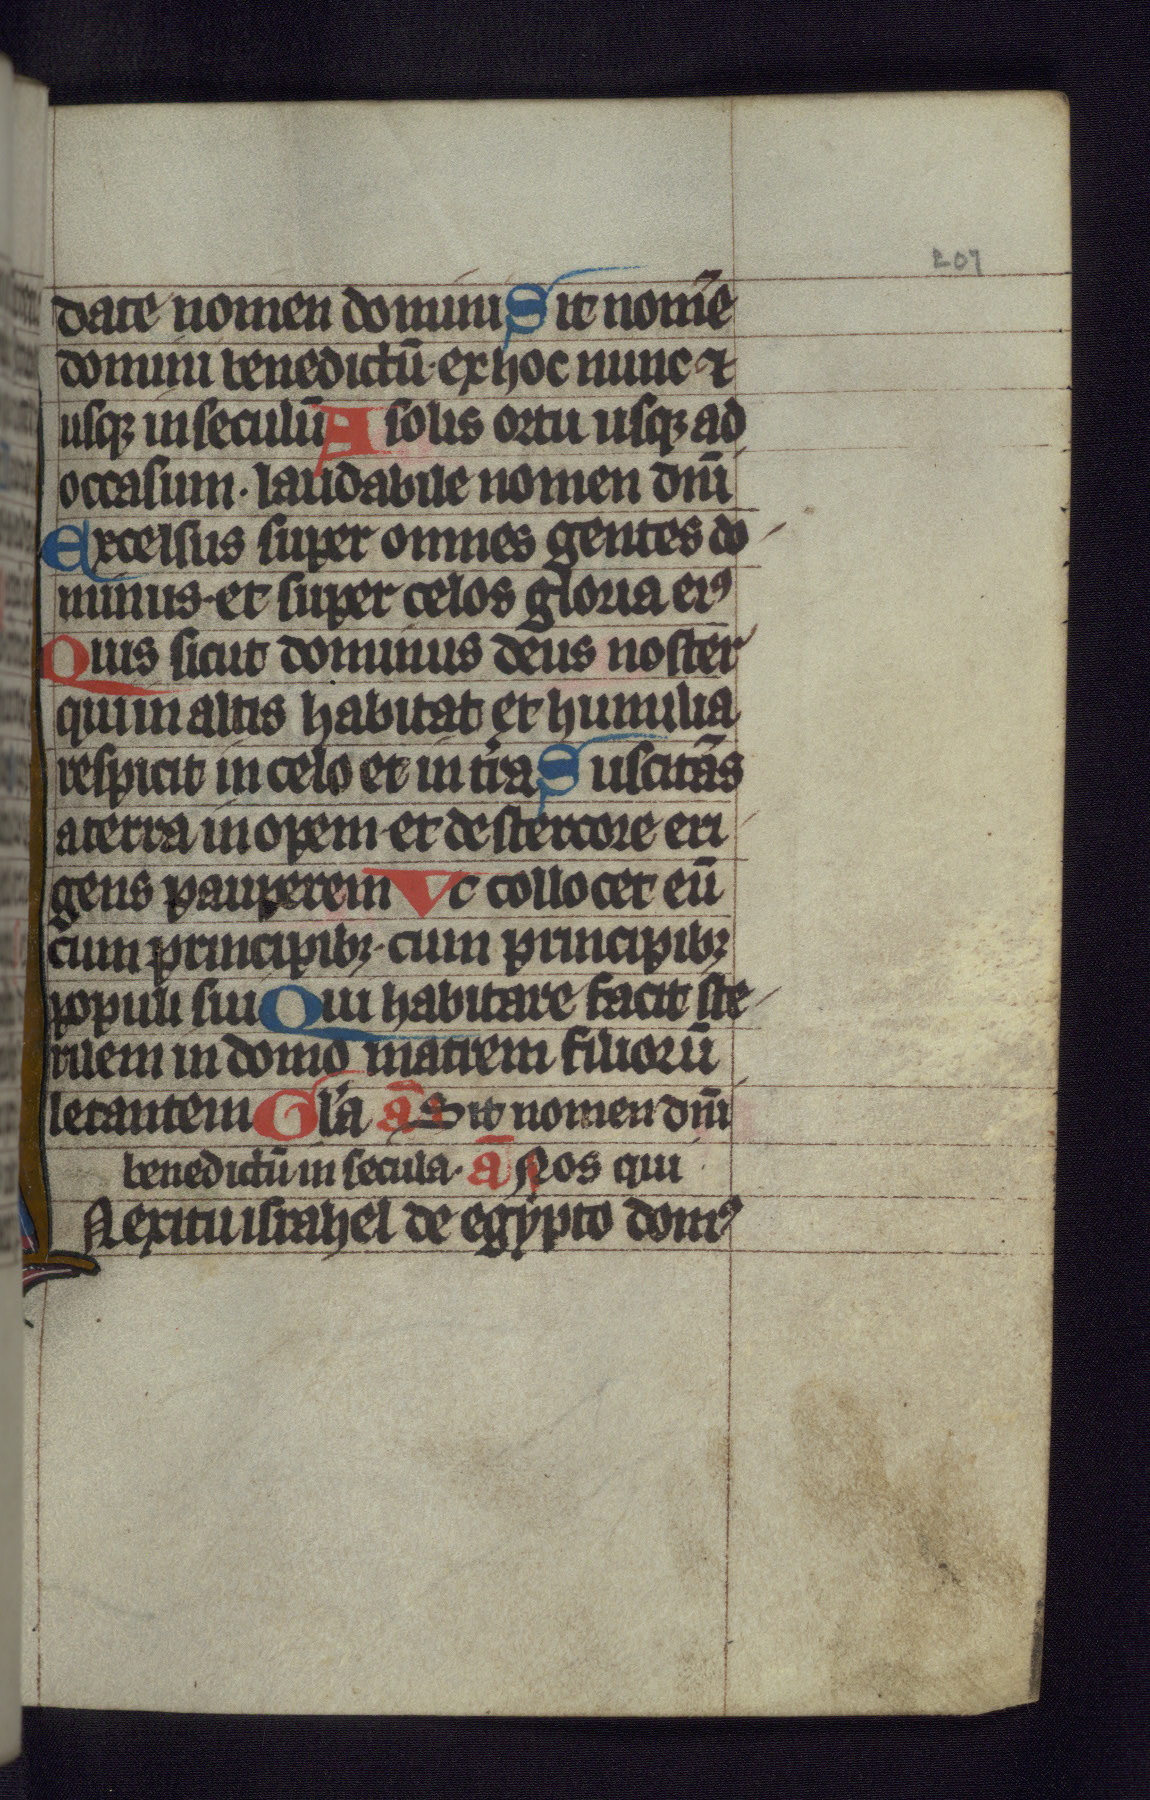 207
date nomen domini Sit nom̄e
domini benedictū· ex hoc nunc ⁊
usqꝫ in seculū A solis ortu usqꝫ ad
occasum· laudabile nomen dn̄i
Excelsus super omnes gentes do
minus· et super celos gloria eiꝰ
Quis sicut dominus deus noster
qui in altis habitat et humilia
respicit in celo et in tr̄a Suscitās
a terra inopem· et de stercore eri
gens pauperem Vt collocet eū
cum principibꝫ· cum principibꝫ
populi sui Qui habitare facit ste
rilem in domo matrem filiorū
letantem Gl̄a ā Sit nomen dn̄i
benedictū in secula· ā Nos qui
N exitu israhel de egypto domꝰ